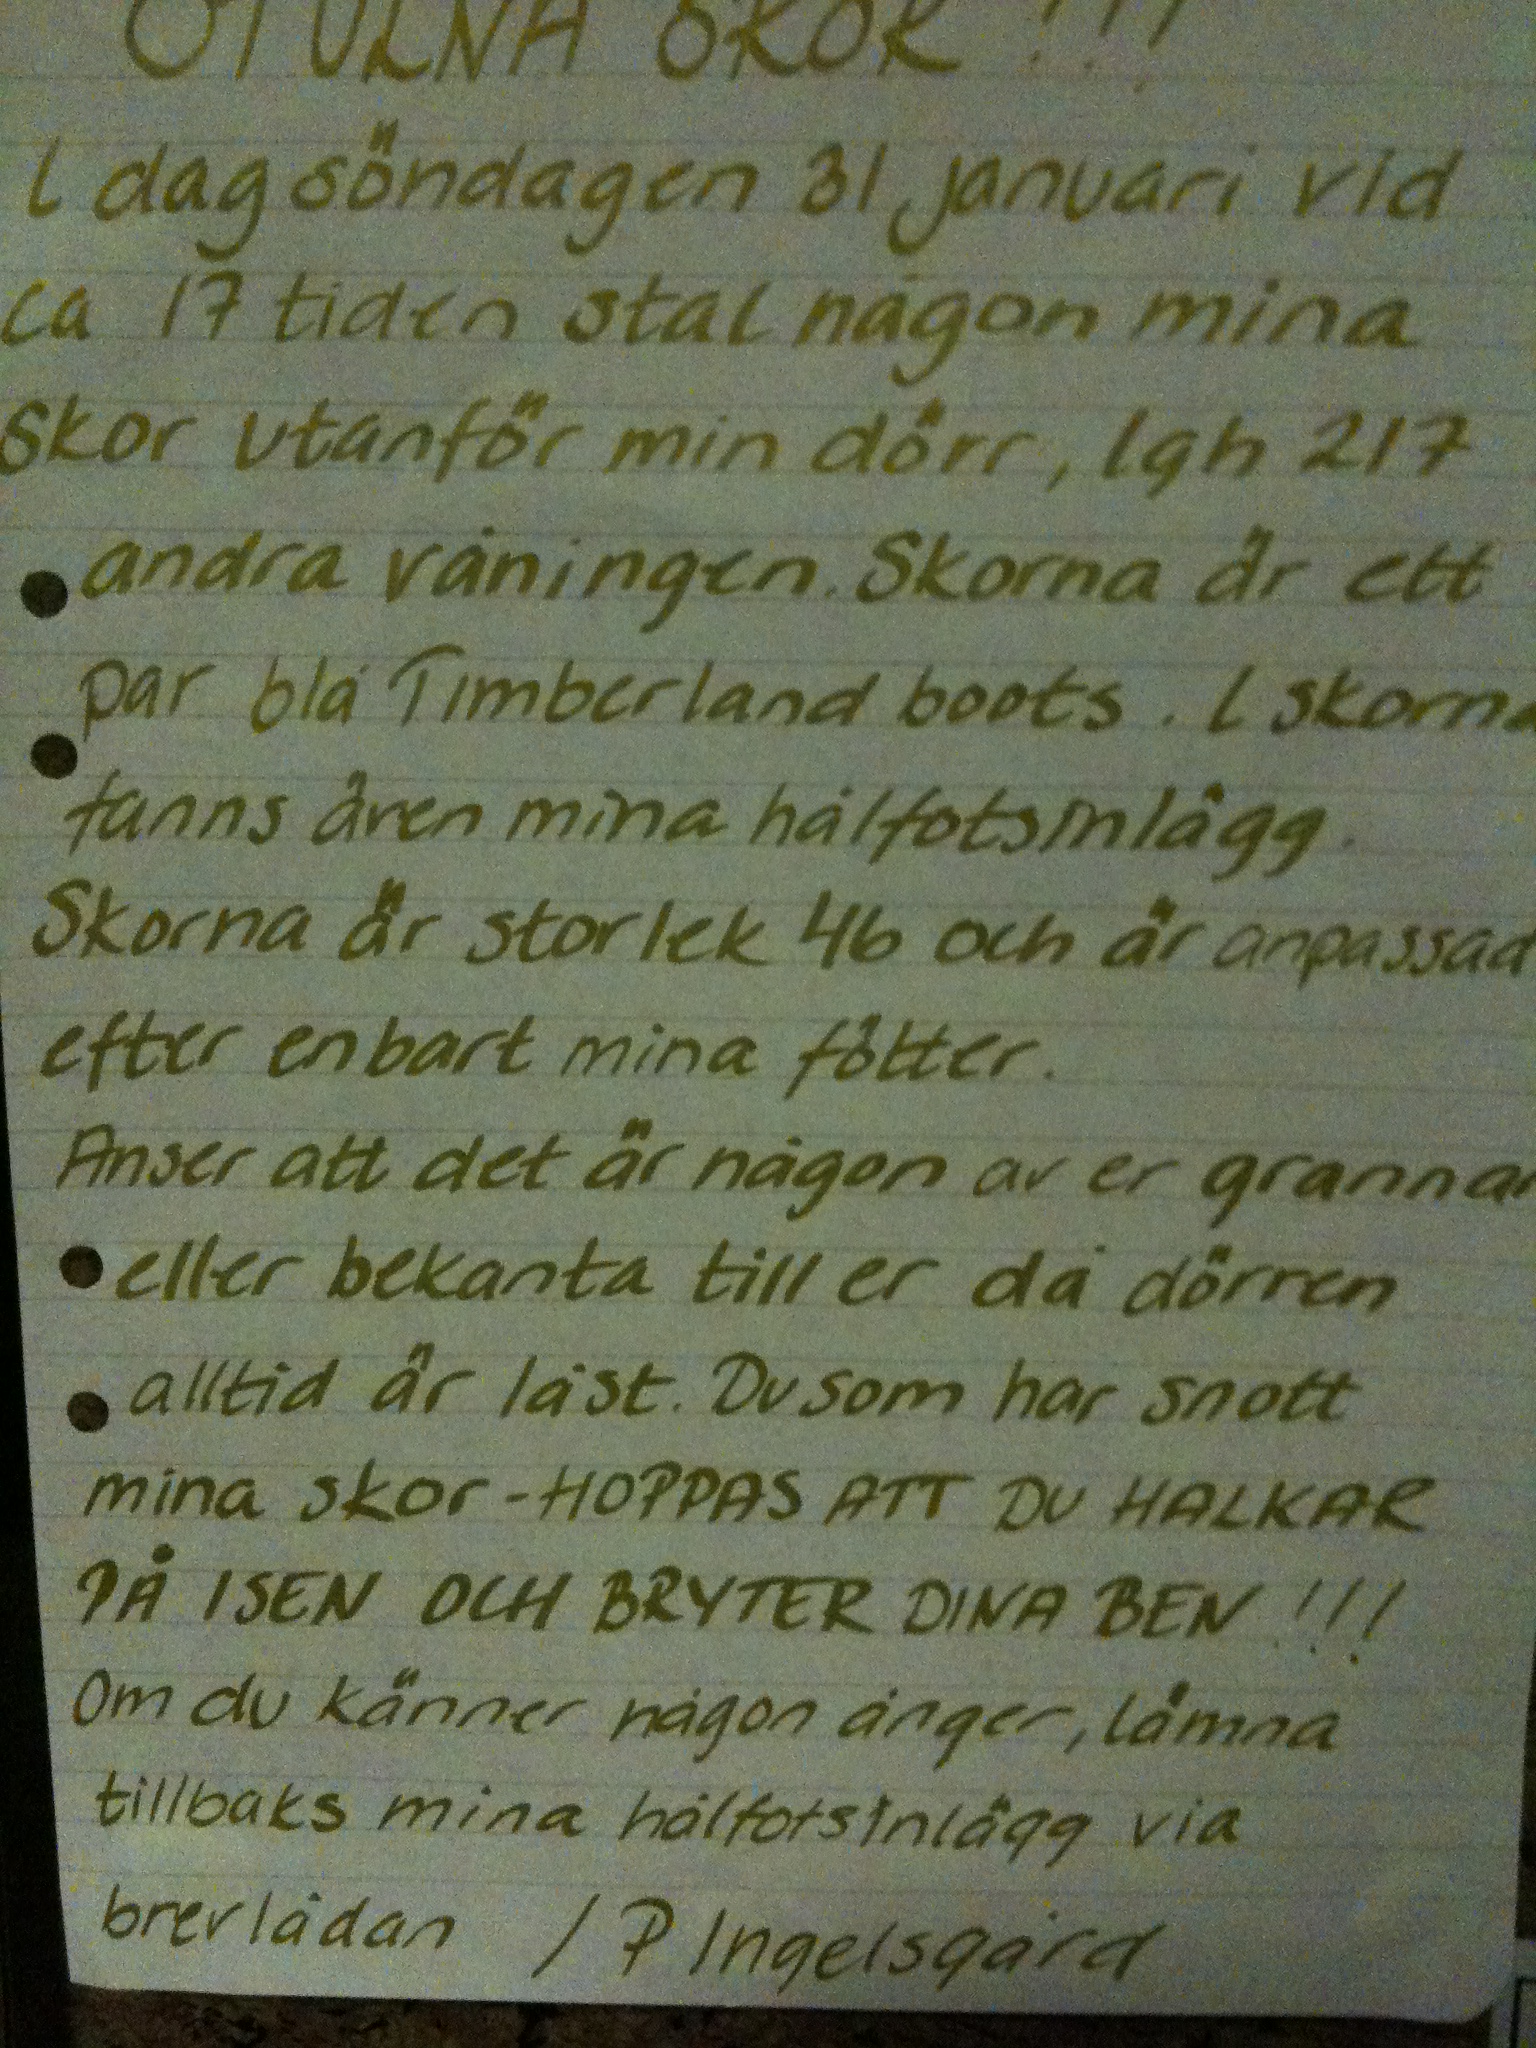 STULNA SKOR !!!
I dag söndagen 31 januari vid
ca 17 tiden stal någon mina
Skor utanför min dörr, lgh 217
andra våningen. Skorna är ett
par blå Timberland boots. I skorna
fanns även mina hålfotsinlägg.
Skorna är storlek 46 och är anpassad
efter enbart mina fötter.
Anser att det är någon av er grannar
eller bekanta till er då dörren
alltid är låst. Du som har snott
mina skor - HOPPAS ATT DU HALKAR
PÅ ISEN OCH BRYTER DINA BEN !!!
Om du känner någon ånger, lämna
tillbaks mina hålfotsinlägg via
brevlådan / P Ingelsgård